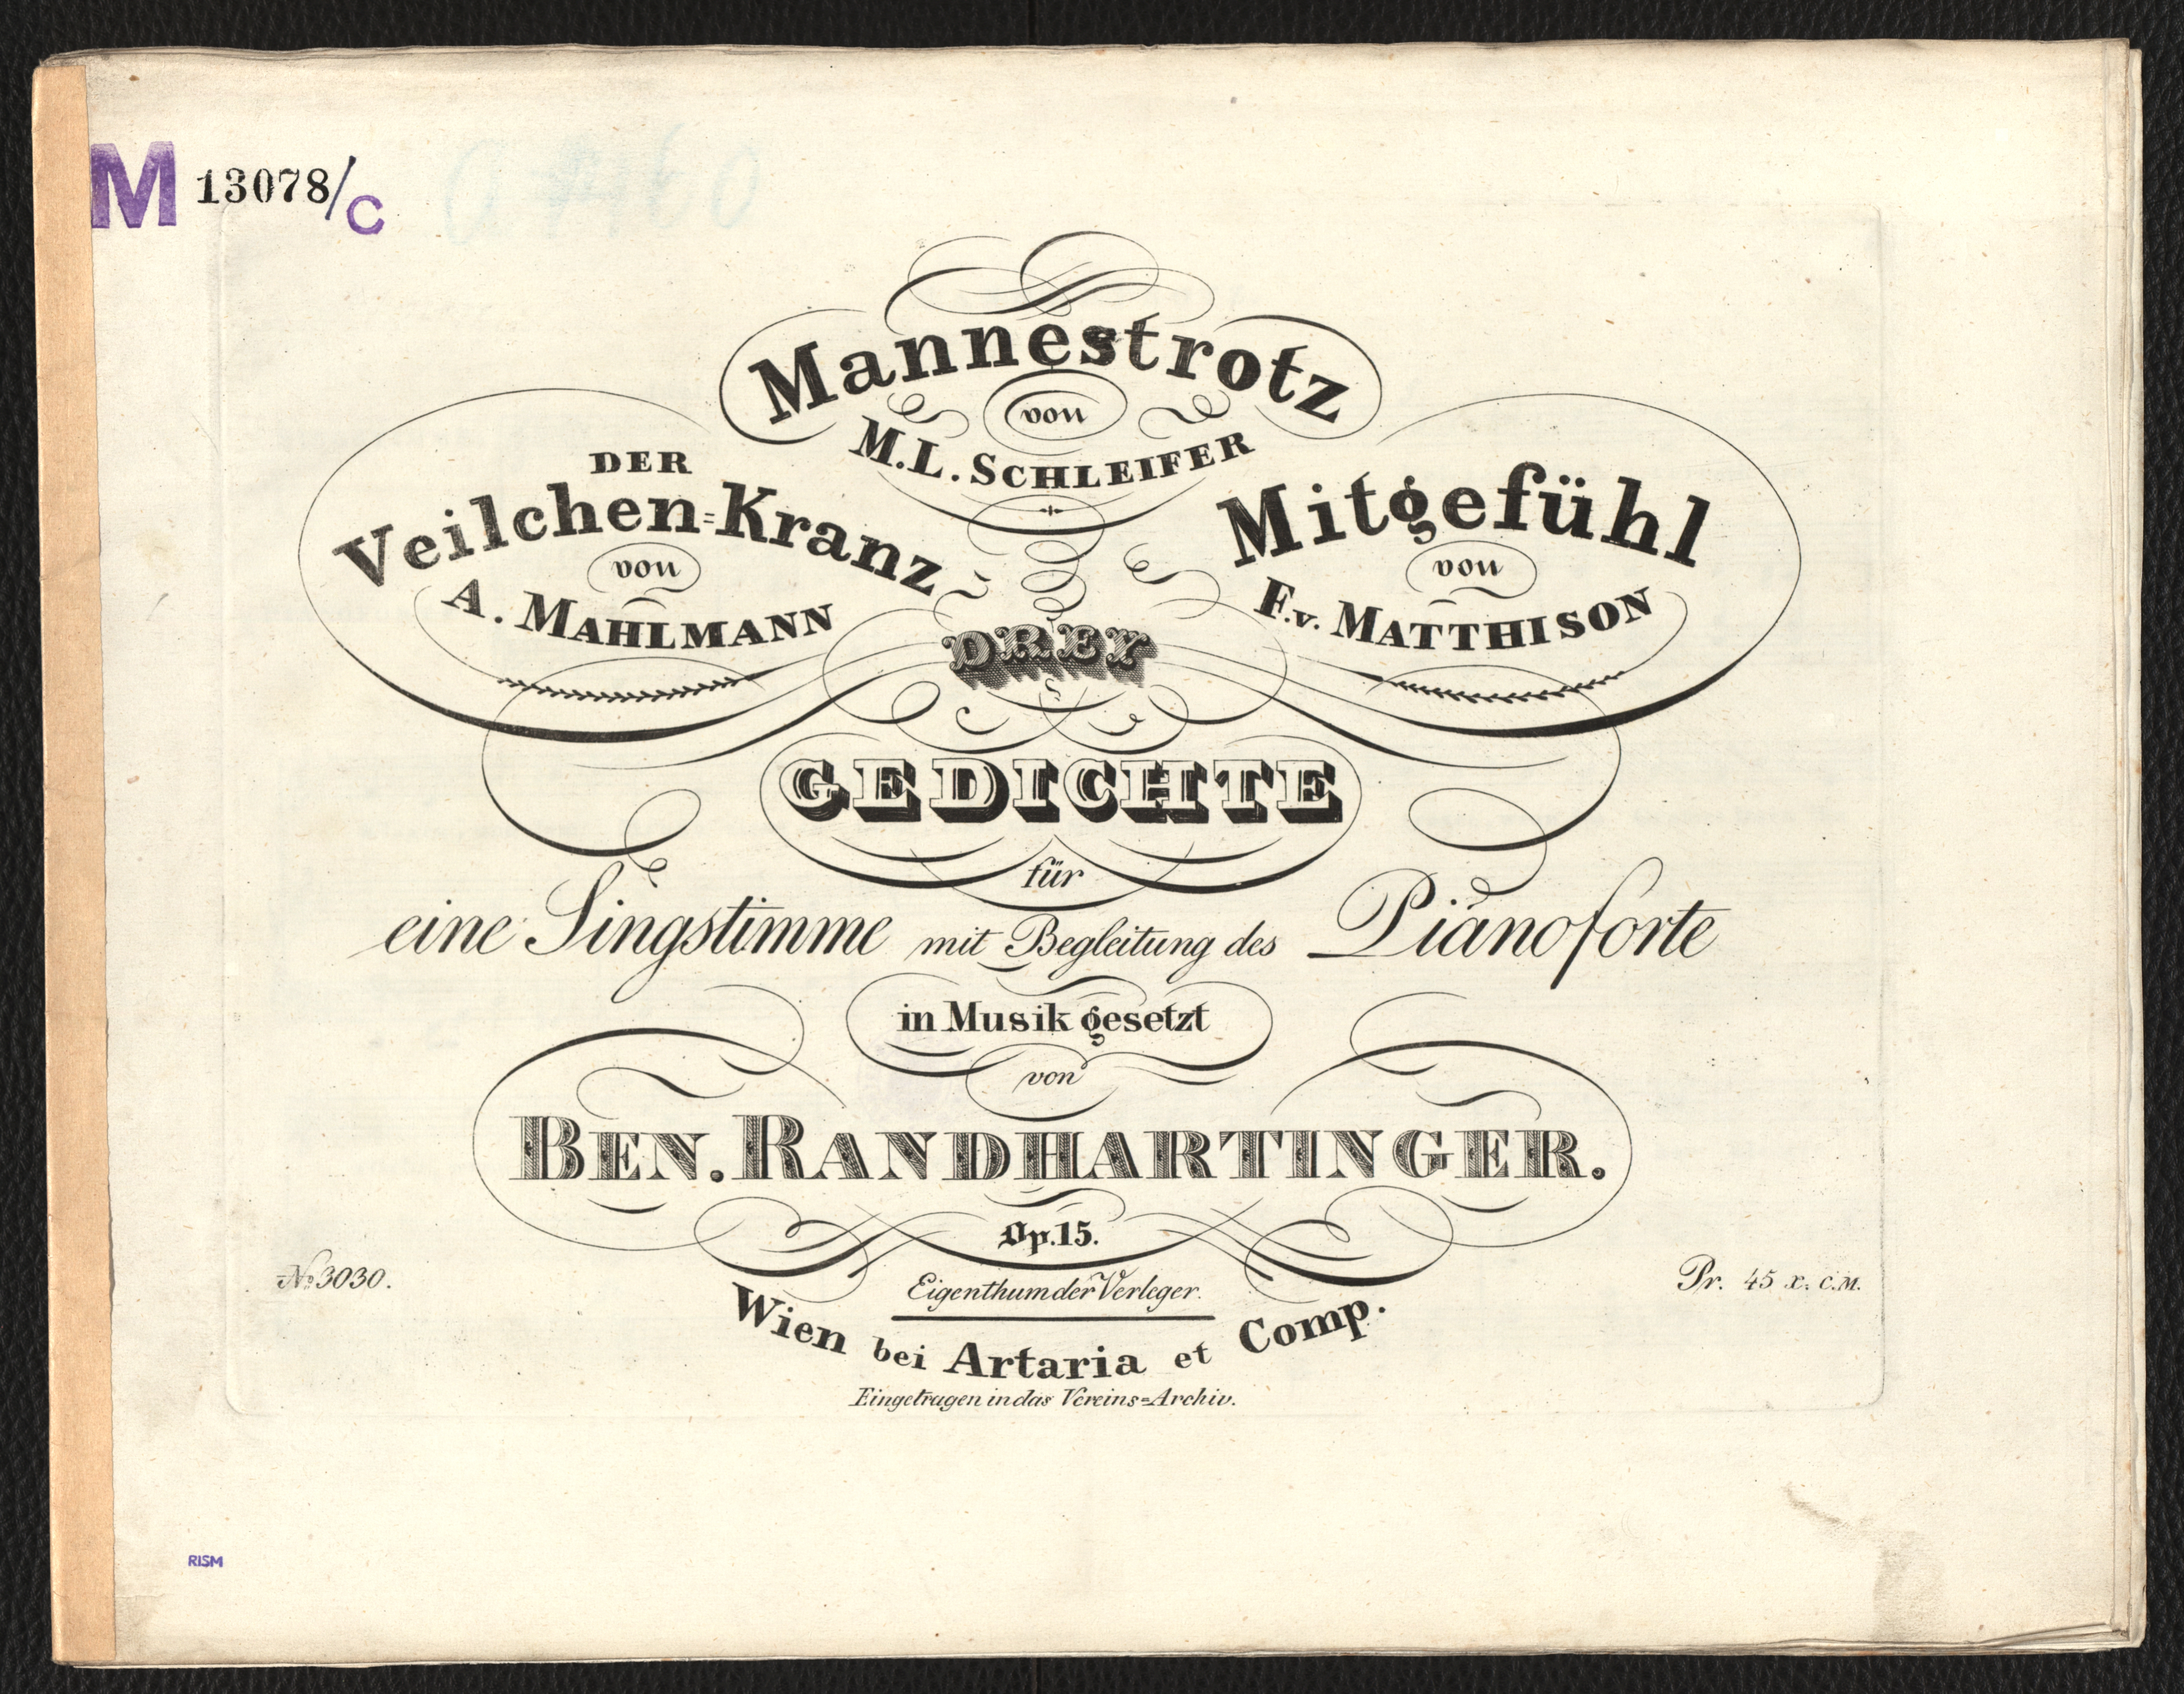 M 13078/C
Mannestrotz
von
M.L. SCHLEIFER
DER
Veilchen=Kranz
von
A. MAHLMANN
Mitgefühl
von
F.v. MATTHISON
DREY
GEDICHTE
für
eine Singstimme mit Begleitung des Pianoforte
in Musik gesetzt
von
BEN. RANDHARTINGER.
Op.15.
No 3030.
Eigenthum der Verleger.
Pr. 45 x. C.M.
Wien bei Artaria et Comp.
Eingetragen in das Vereins=Archiv.
RISM